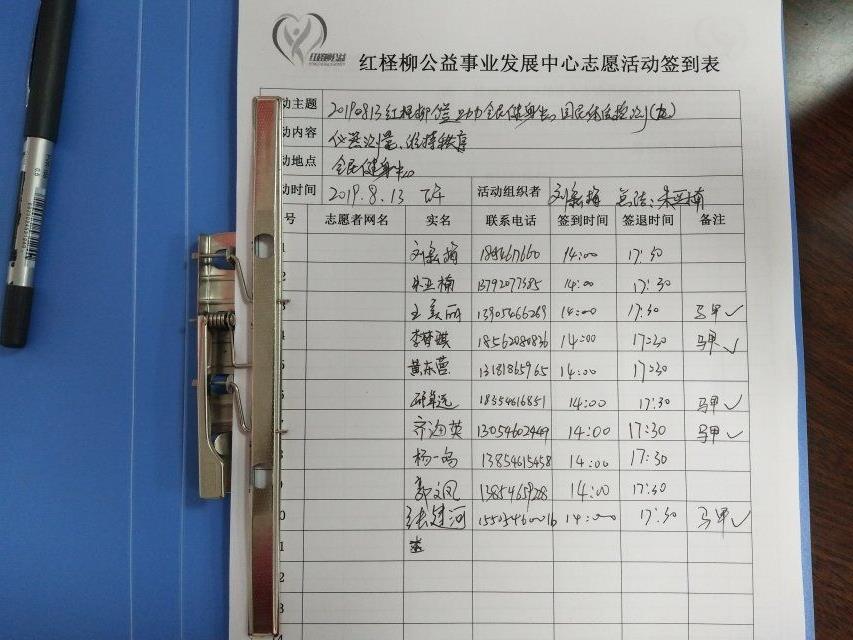 红柽柳公益
红柽柳公益事业发展中心志愿活动签到表
动主题 20190813红柽柳公益助力全民健身中心国民体质检测(五)
动内容 仪器测量、维持秩序
动地点 全民健身中心
动时间 2019.8.13 下午 活动组织者
号 志愿者网名 实名 联系电话 签到时间 签退时间 备注
1 14:00 17:30
2 13792077385 14:00 17:30
3 王美丽 13905466269 14:00 17:30 马甲✓
4 李梦琪 18562080836 14:00 17:30 马甲✓
5 黄东营 13181865965 14:00 17:30
6 18354616851 14:00 17:30 马甲✓
7 齐海英 13054602449 14:00 17:30 马甲✓
8 杨一鸣 13854615458 14:00 17:30
9 郭文凤 14:00 17:30
0 张建河 14:00 17:30 马甲✓
1
2
3